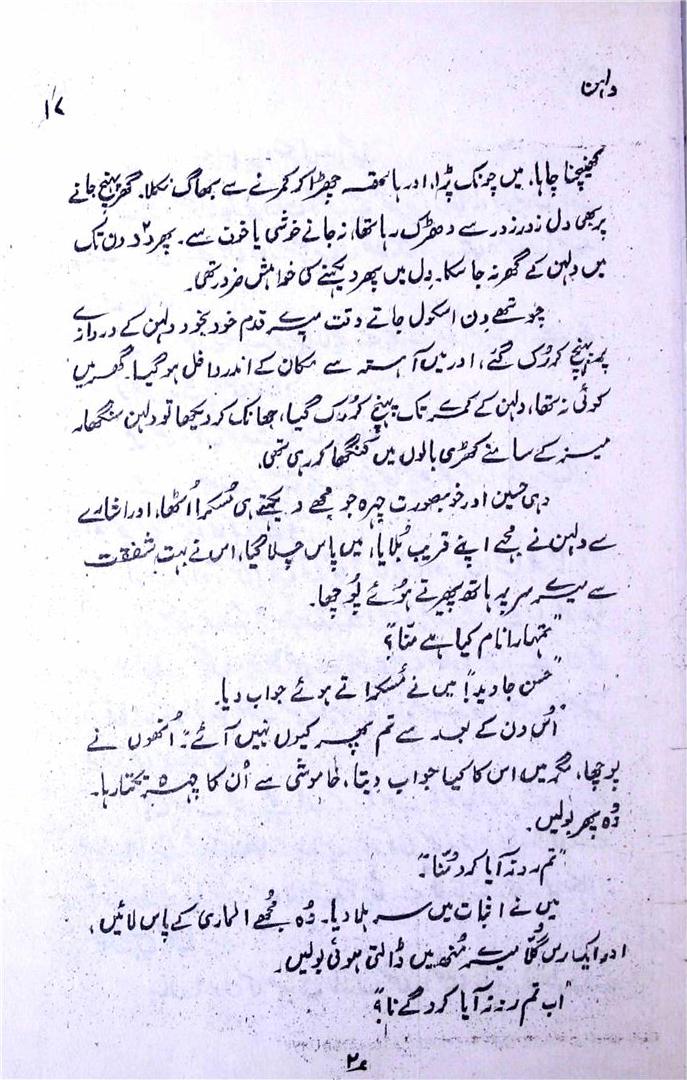 دلہن
۱۷
کھینچنا چاہا، میں چونک پڑا، اور ہاتھ چھڑا کر کمرنے سے بھاگ نکلا۔ گھر پہنچ جانے
پر بھی دل زور زور سے دھڑک رہا تھا، نہ جانے خوشی یا خوف سے۔ پھر ۲ دن تک
میں دلہن کے گھر نہ جا سکا۔ دل میں پھر دیکھنے کی خواہش ضرور تھی۔
چوتھے دن اسکول جاتے وقت میرے قدم خود بخود دلہن کے دروازے
پر پہنچ کر رُک گئے، اور میں آہستہ سے مکان کے اندر داخل ہو گیا۔ گھر میں
کوئی نہ تھا، دلہن کے کمرے تک پہنچ کر رُک گیا، جھانک کر دیکھا تو دلہن سنگھار
میز کے سامنے کھڑی بالوں میں کنگھا کر رہی تھی،
وہی حسین اور خوبصورت چہرہ جو مجھے دیکھتے ہی مُسکرا اُٹھا، اور اشارے
سے دلہن نے مجھے اپنے قریب بُلایا، میں پاس چلا گیا، اس نے بہت شفقت
سے میرے سر پہ ہاتھ پھیرتے ہوئے پُوچھا۔
"تمہارا نام کیا ہے مُنّا؟"
"حسن جاوید!" میں نے مُسکراتے ہوئے جواب دیا۔
"اُس دن کے بعد سے تم پھر کیوں نہیں آئے؟" اُنھوں نے
پوچھا، مگر میں اس کا کیا جواب دیتا، خاموشی سے اُن کا چہرہ تکتا رہا۔
وُہ پھر بولیں۔
"تم روز آیا کرو مُنّا۔"
میں نے اثبات میں سر ہلا دیا۔ وُہ مُجھے الماری کے پاس لائیں،
اور ایک رس گُلّا میرے مُنھ میں ڈالتی ہوئی بولیں۔
"اب تم روز آیا کرو گے نا؟"
۲ء